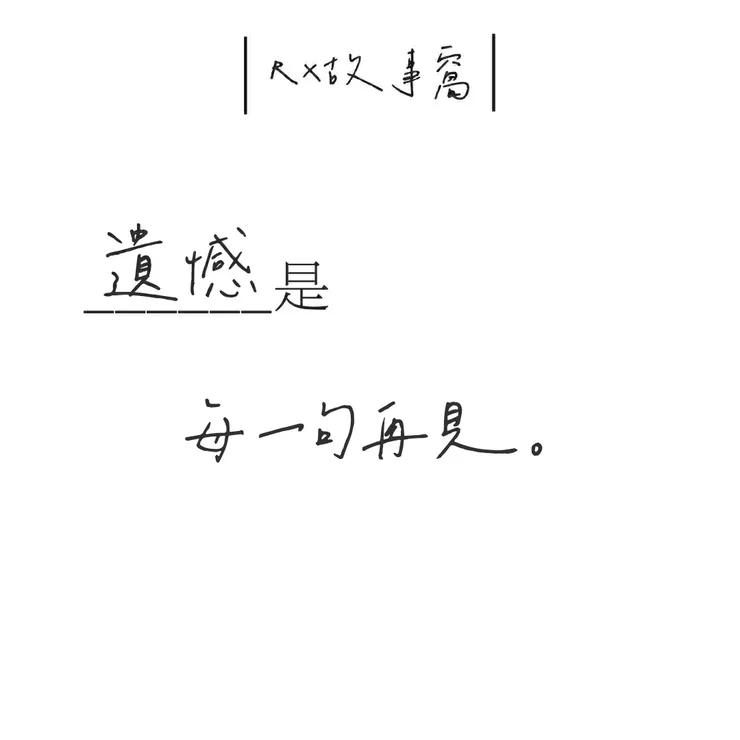 |R×故事窩|
遺憾是
每一句再見。